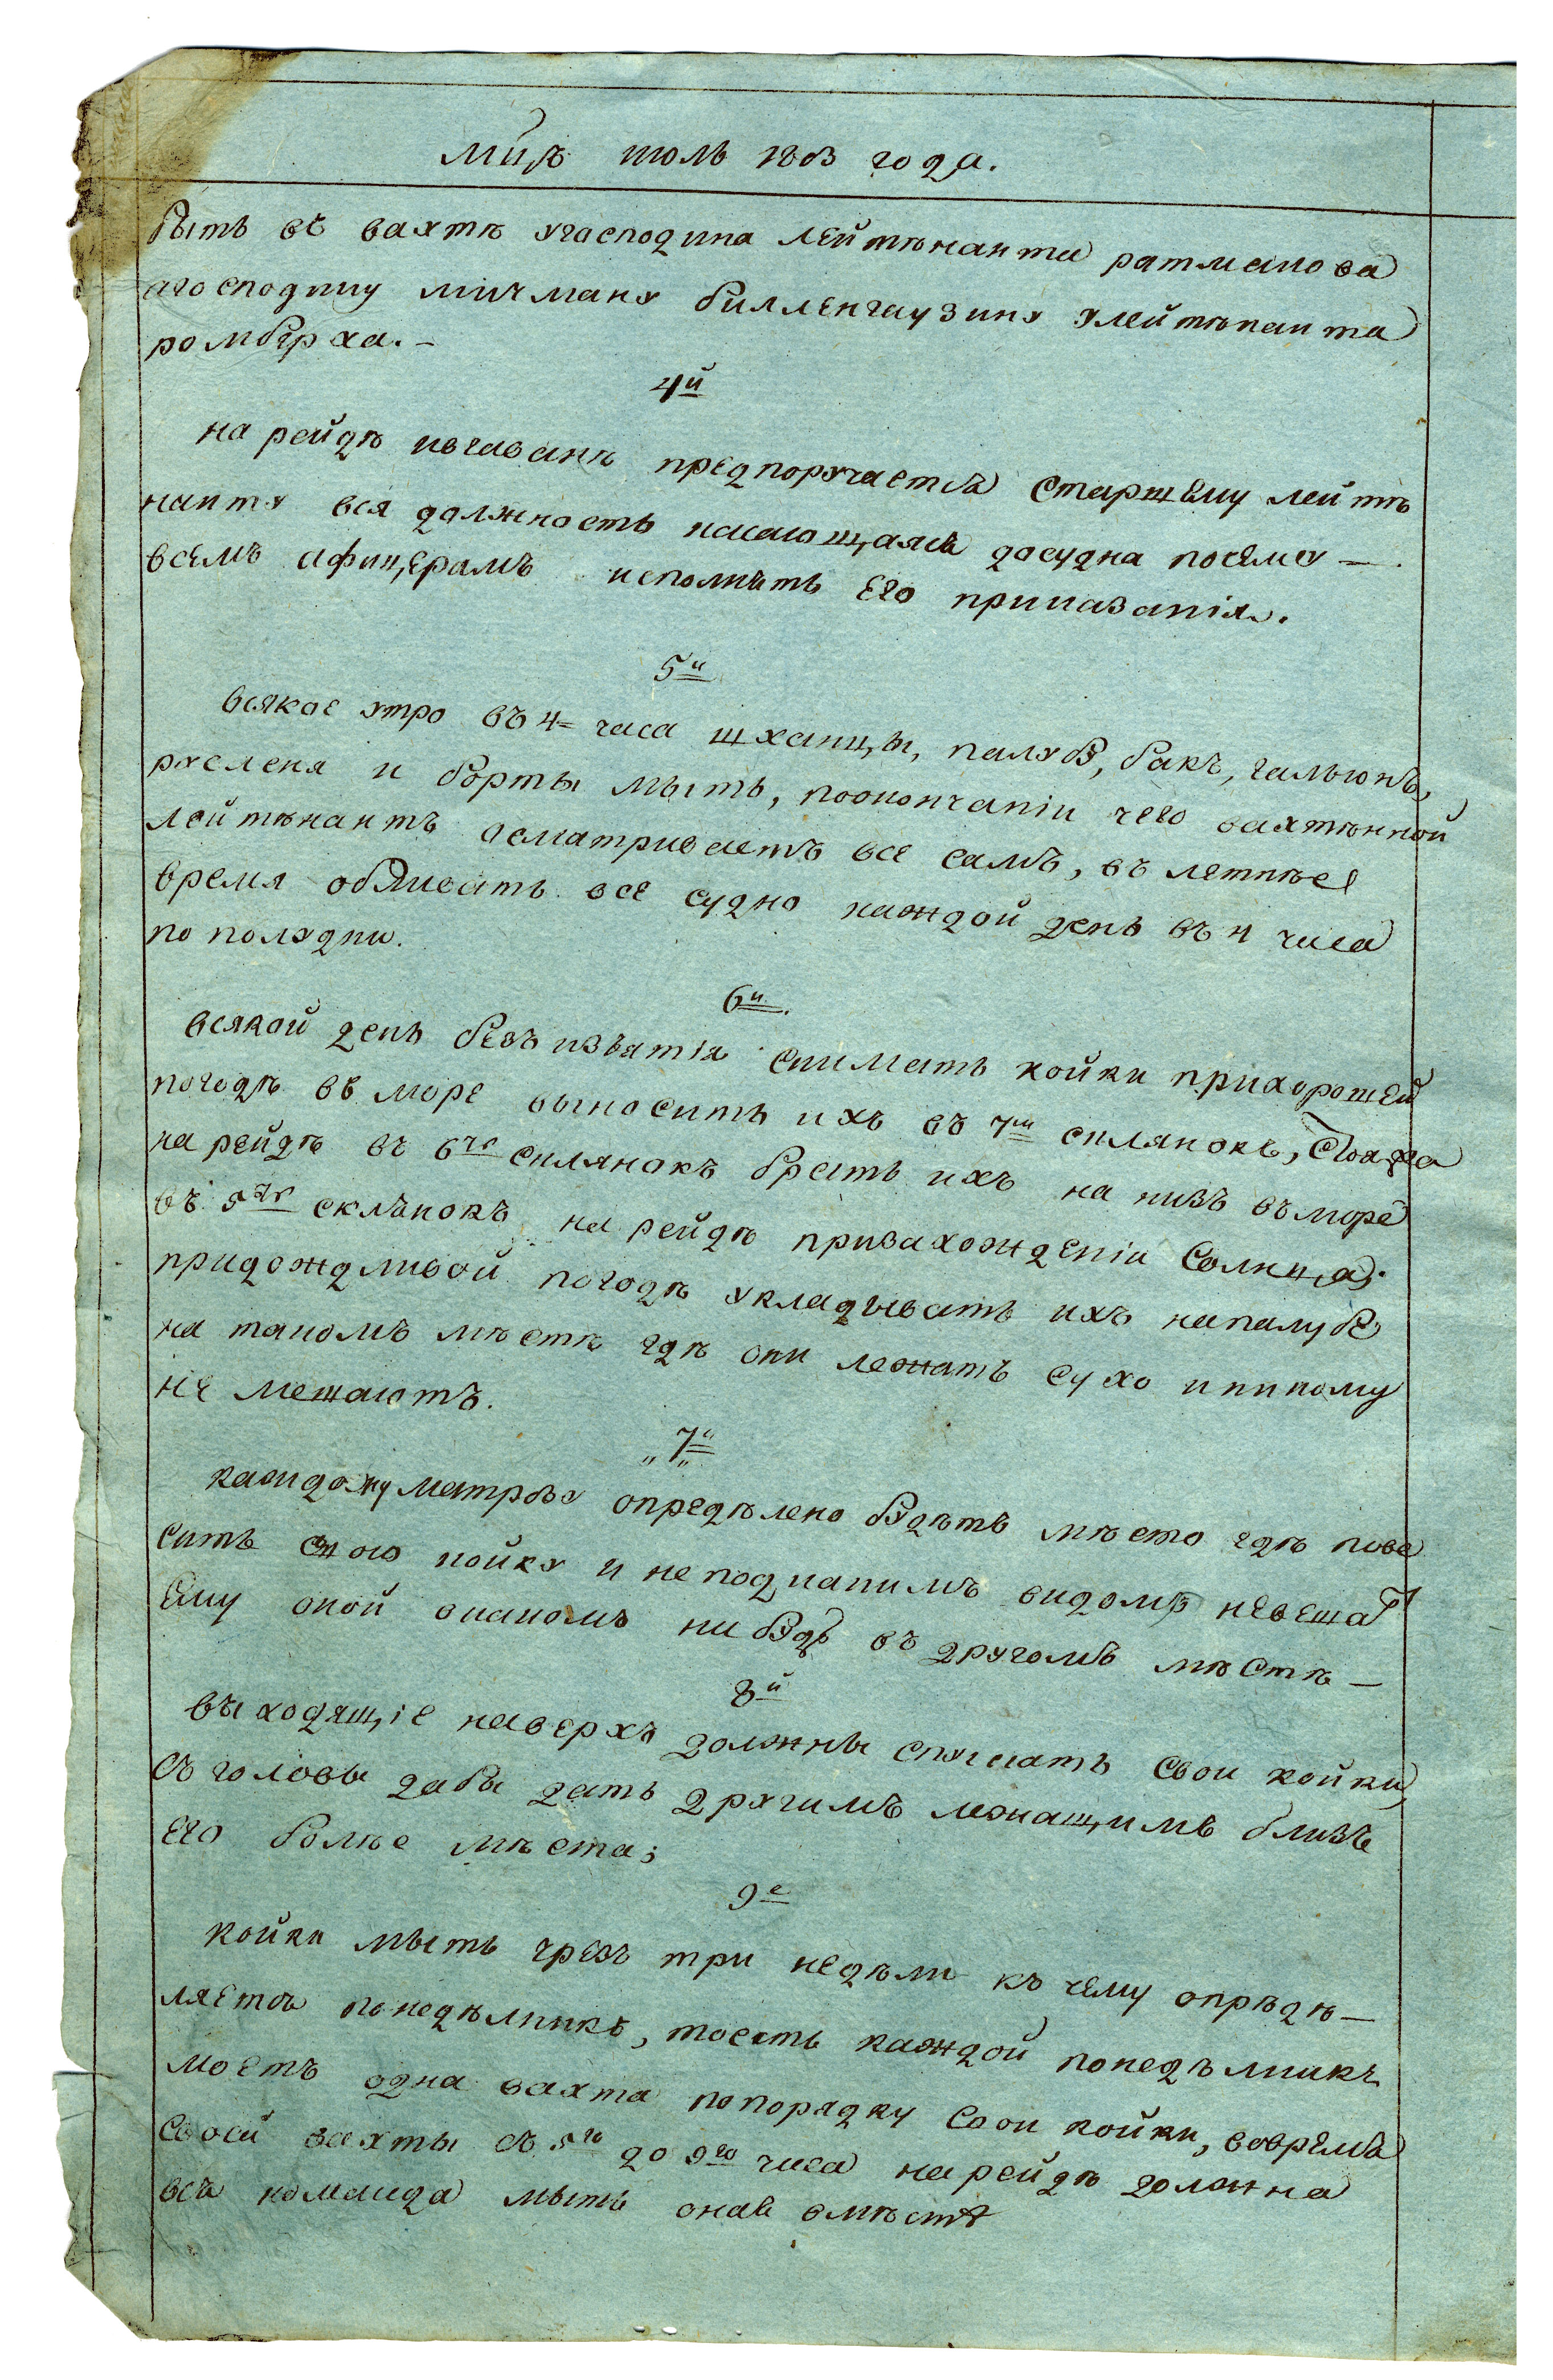 мц͠ъ июль 1803 года.
быть въ вахтѣ угасподина лейтѣнанта ратманова
агосподину мичману билленгаузину улейтѣнанта
ромберха. -
4й
на рейдѣ ивгаванѣ предпоручается старшему лейтѣ
нанту вся должность касающаяся досудна посему —
всемъ афицерамъ исполнять его приказанія.
5й
всякое утро въ 4= часа шханцы, палуб, бакъ, гальюнъ,
русленя и борты мыть, поокончаніи чего вахтѣнной
лейтѣнантъ асматриваетъ все самъ, въ летнѣе
время обливать все судно каждой день въ 4 часа
по полудни.
6й.
всякой день безъ изъятія снимать койки прихорошей
погодѣ въ море выносить ихъ въ 7ми склянокъ, стоя на
на рейдѣ въ 6ть склянокъ брать ихъ на низъ въ море
въ 5ть склянокъ на рейдѣ призахожденіи солнца;
придождливой погодѣ укладывать ихъ напалубе
на такомъ мѣстѣ гдѣ они лежатъ сухо иникому
не мешаютъ.
„ 7й „
каждому матрозу опредѣлено будѣтъ мѣсто гдѣ пове
сить свою койку и неподкакимъ видомъ невешат
ему оной вкакомъ нибудь въ другомъ мѣстѣ —
8й
выходящіе наверхъ должны спускать свои койки
съ головы дабы дать другимъ лежащимъ близъ
его болѣе мѣста;
9е
койки мыть чрезъ три недѣли къ чему опрѣдѣ —
ляется понедѣлникъ, тоесть каждой понедѣлникъ
моетъ одна вахта попорядку свои койки, вовремя
своей вахты съ 5го до 9го часа нарейдѣ должна
вся команда мыть онае вмѣстѣ